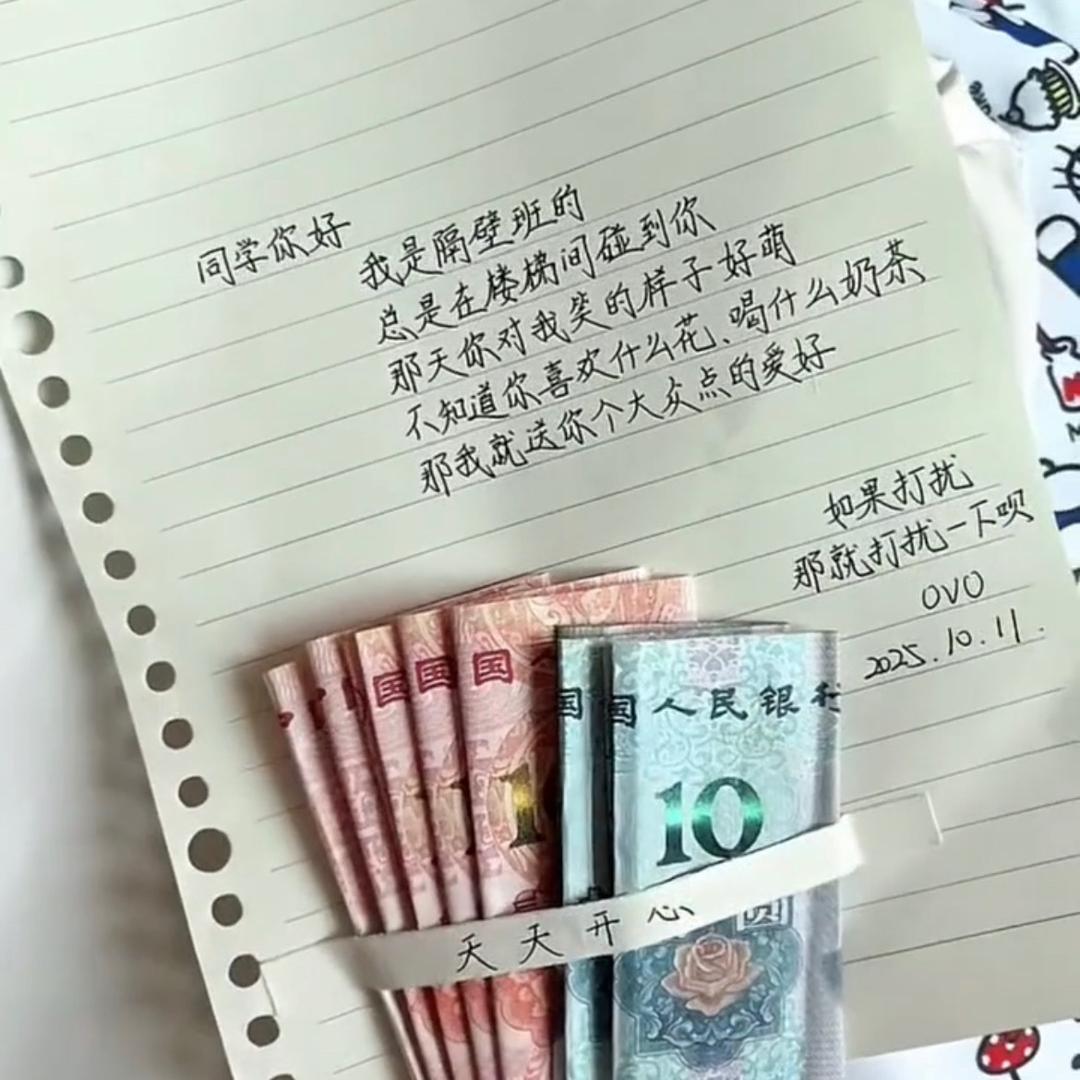 同学你好
我是隔壁班的
总是在楼梯间碰到你
那天你对我笑的样子好萌
不知道你喜欢什么花、喝什么奶茶
那我就送你个大众点的爱好
如果打扰
那就打扰一下呗
OVO
2025.10.11.
国
国
国
国
国人民银行
10
圆
天天开心